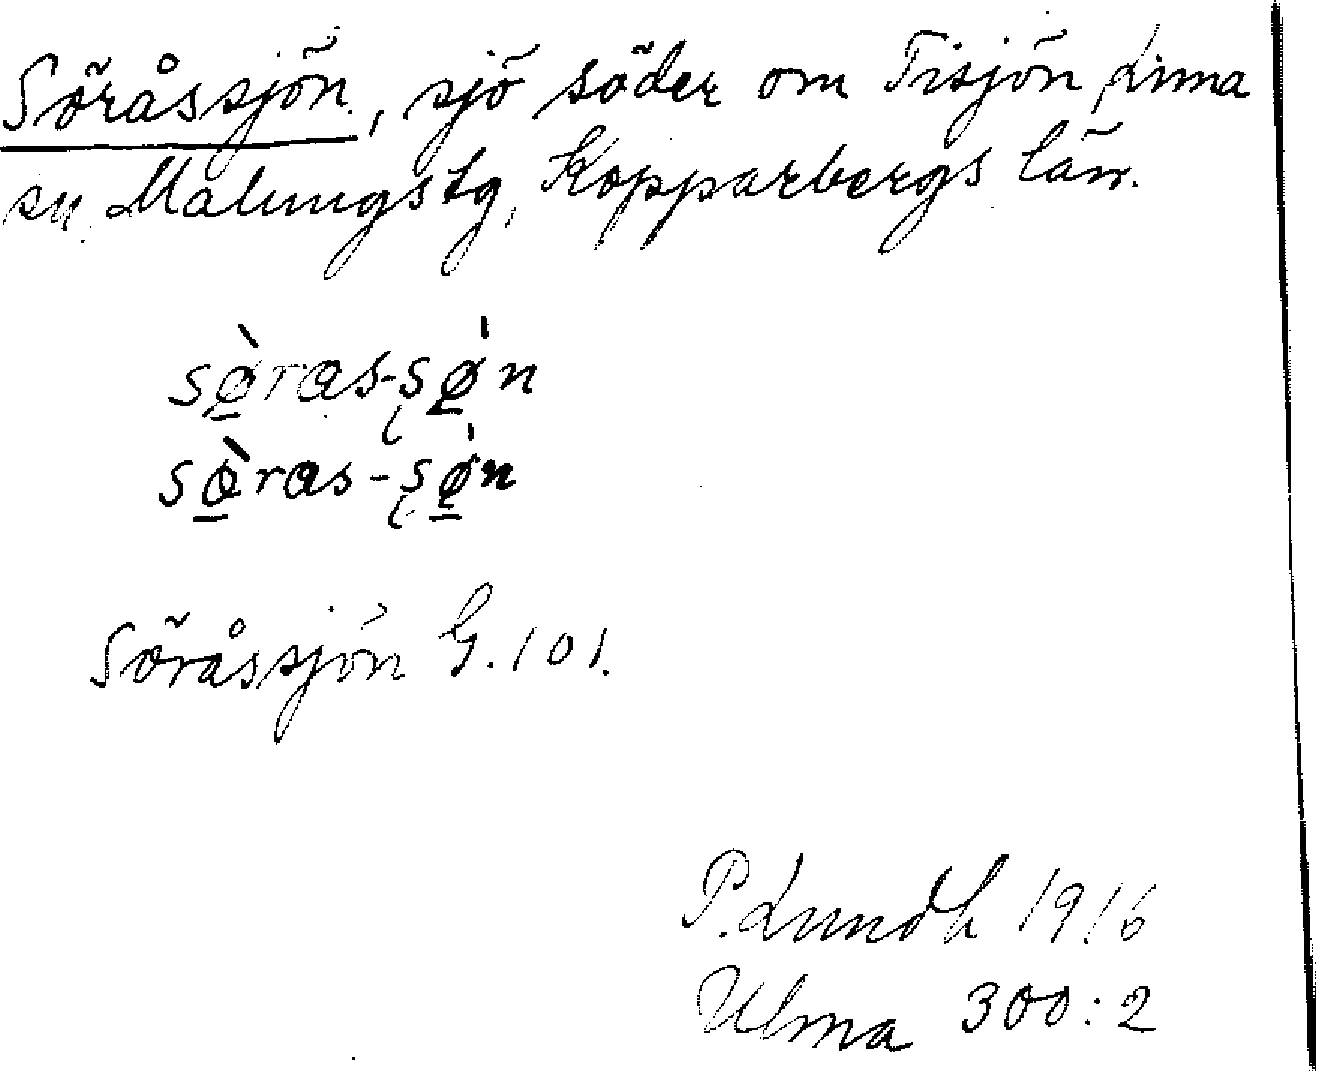 Söråssjön, sjö söder om Tisjön Lima
sn, Malungstg, Kopparbergs län.
sø̱̀ras-şø̱̍n
sø̱̀ras-şø̱̍n
Söråssjön G. 101.
P. Lundh 1916
Ulma 300:2